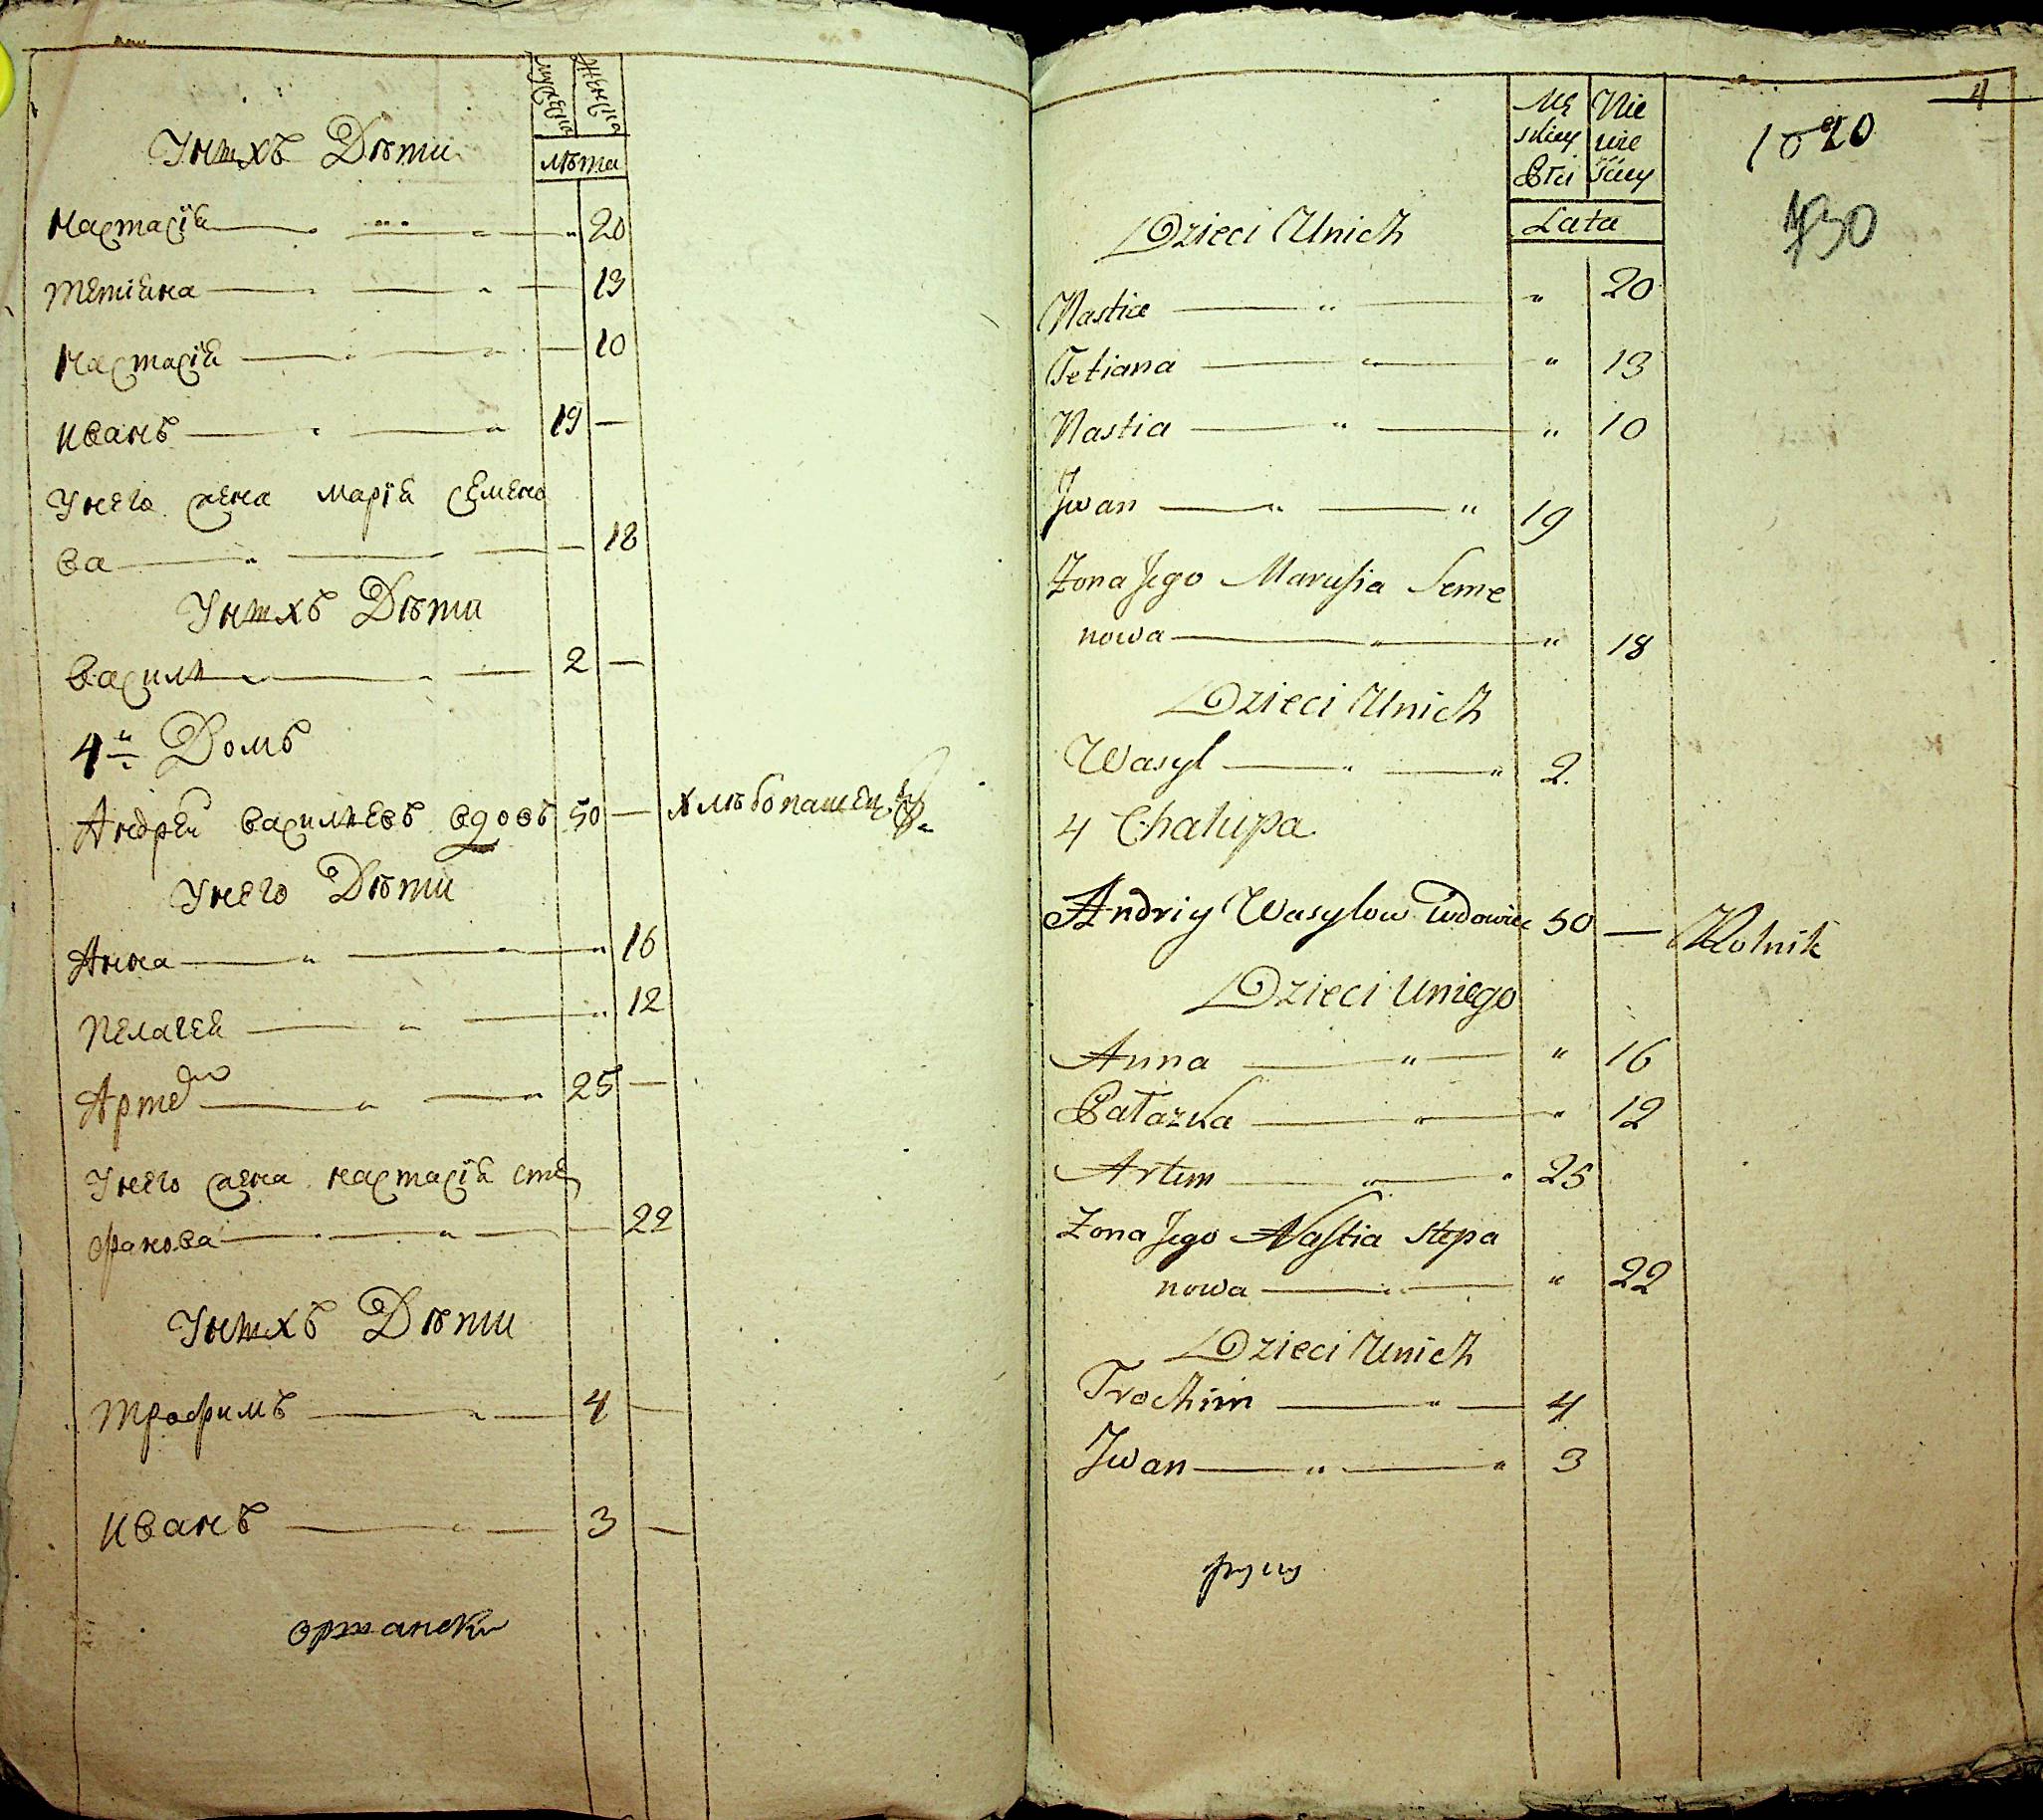 мужеска женска
лѣта
У нихъ Дѣти
Настасїя 20
Тетїяна 13
Настасїя 10
Иванъ 19
У него жена Марїя Семено
ва 18
У нихъ Дѣти
Василь 2
4й Домъ
Андрей Васильевъ вдовъ 50 хлѣбопашецъ
У него Дѣти
Анна 16
Пелагея 12
Артем 25
У него жена Настасїя Сте
фанова 22
У нихъ Дѣти
Трофимъ 4
Иванъ 3
4
Mę Nie
skiey wie
Płci Sciey
Lata
730
Dzieci Unich
Nastia " 20
Tetiana " 13
Nastia " 10
Jwan 19
Zona Jego Marusia Seme
nowa " 18
Dzieci Unich
Wasyl 2.
4 Chałupa
Andriy Wasylow Wdowiec 50 Rolnik
Dzieci Uniego
Anna " 16
Pałazka " 12
Artem 25
Zona Jego Nastia Stepa
nowa " 22
Dzieci Unich
Trochim 4
Jwan 3